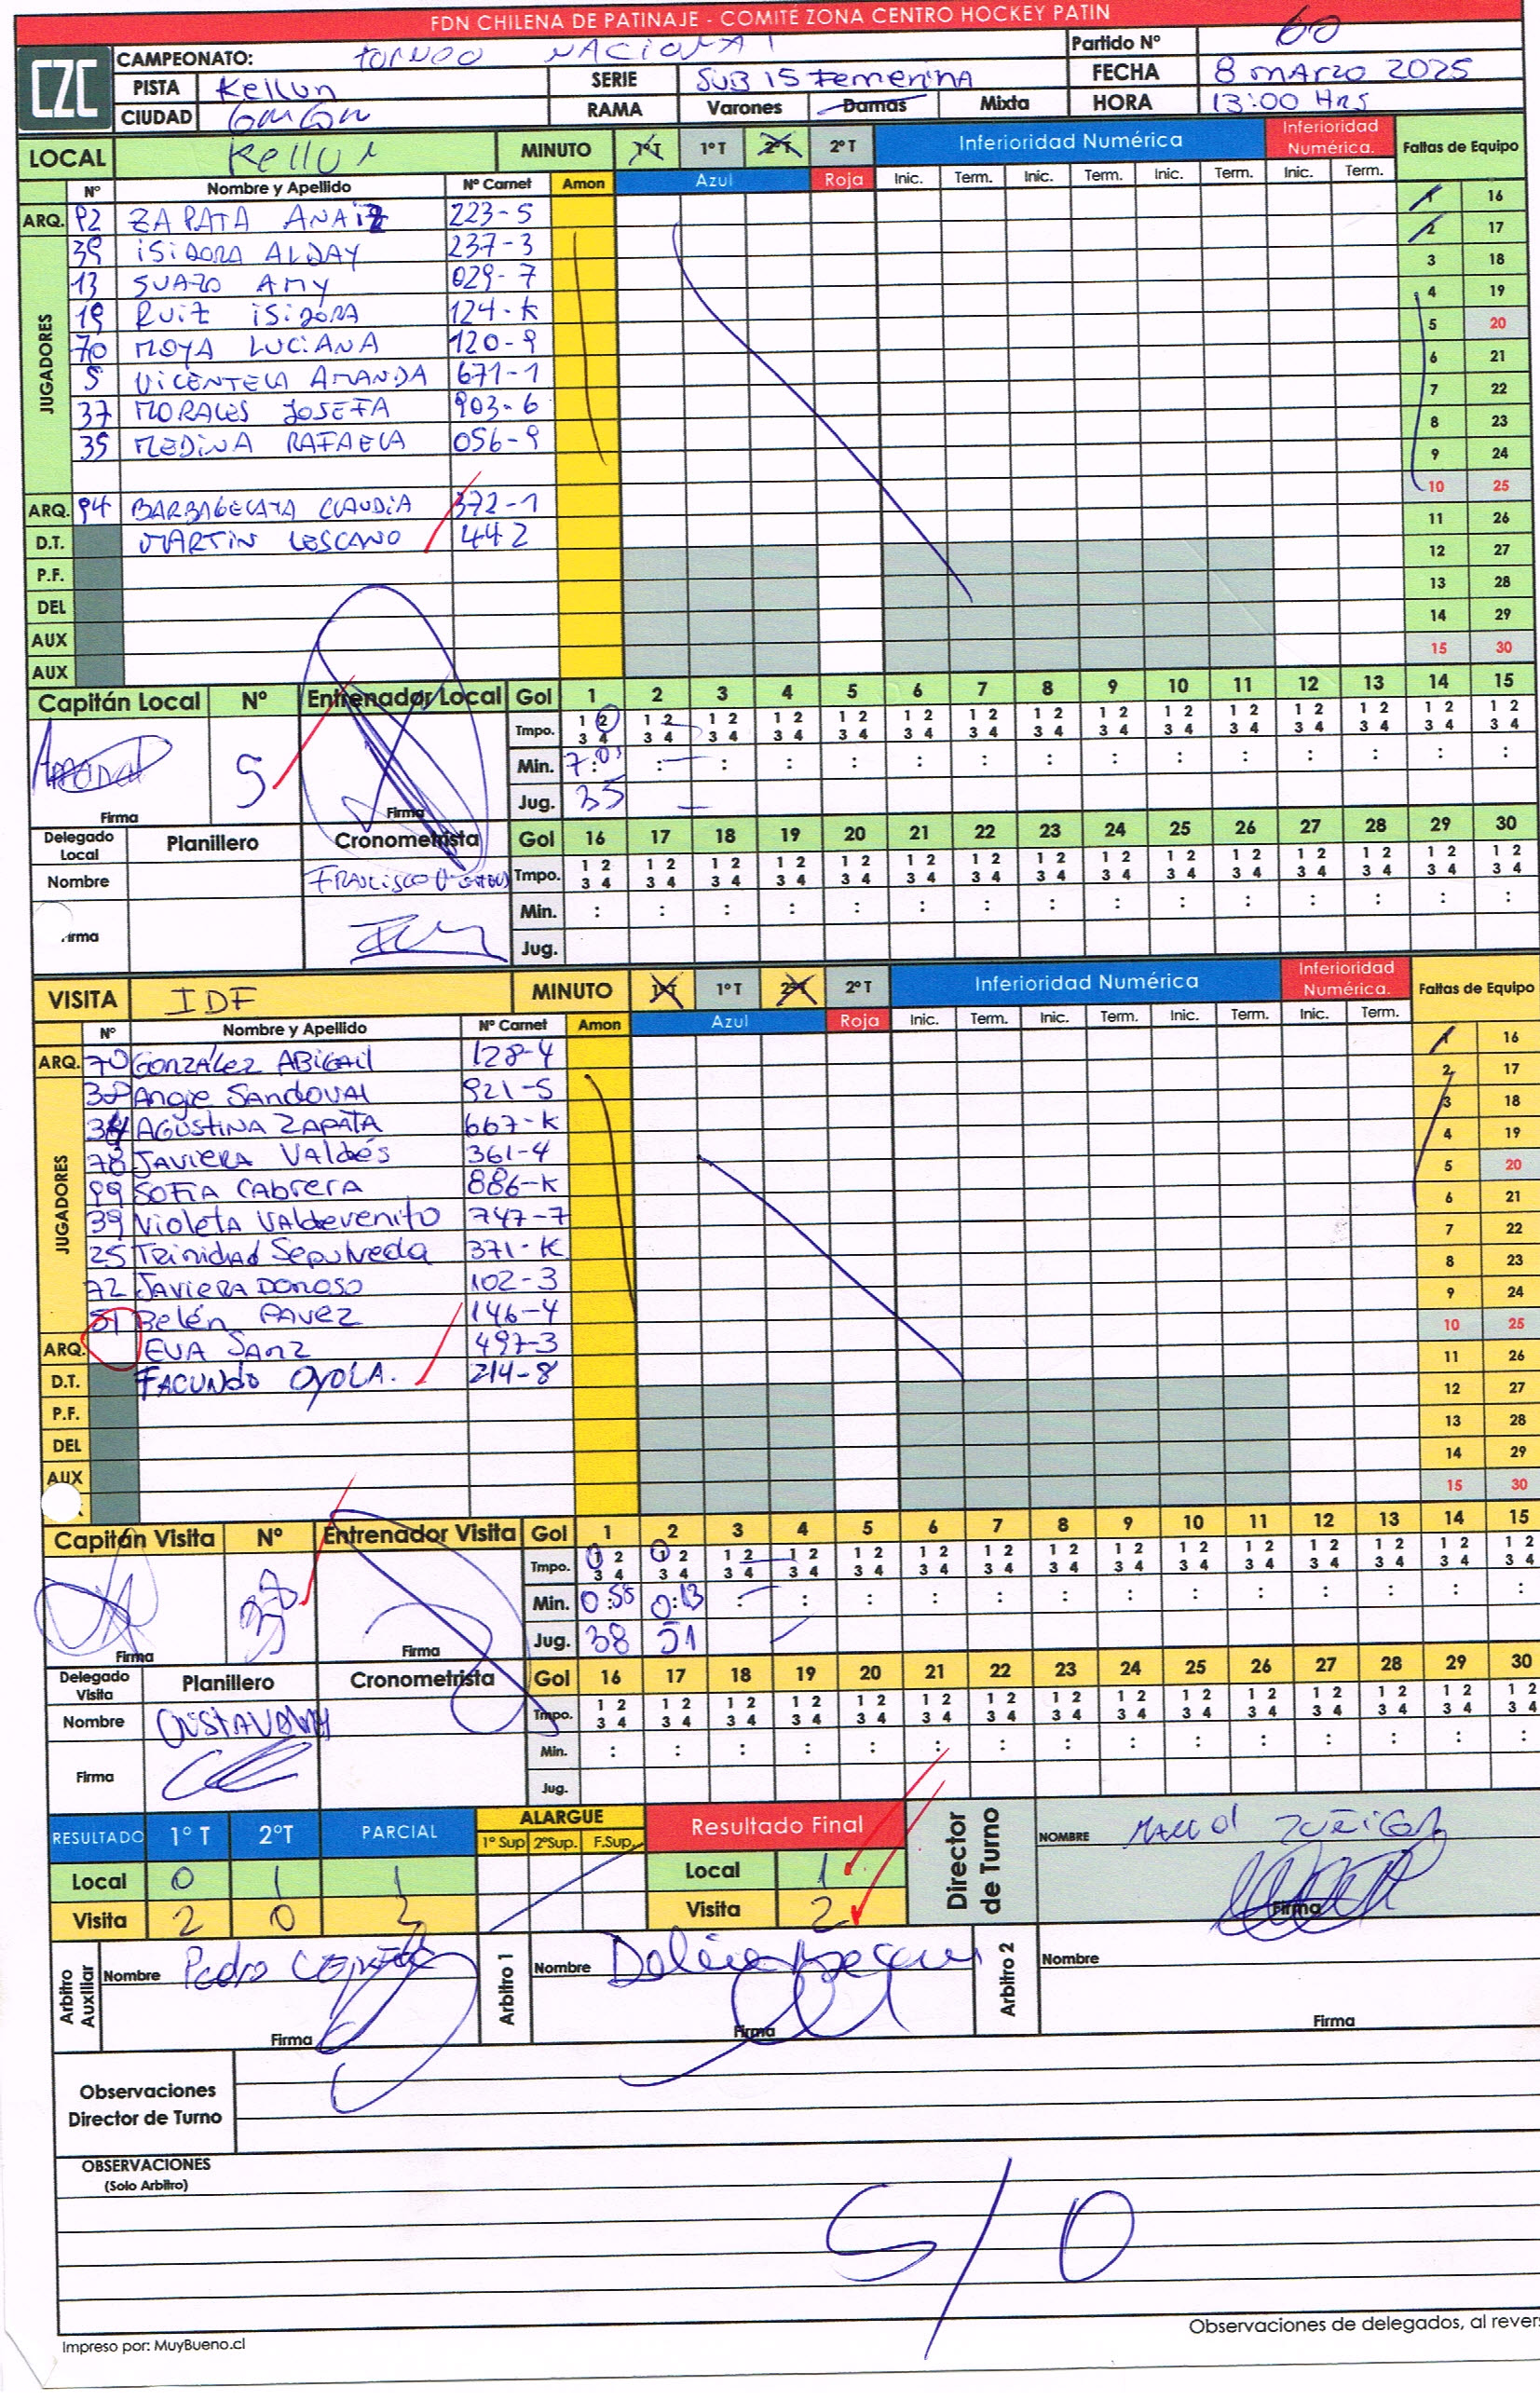 FDN CHILENA DE PATINAJE - COMITÉ ZONA CENTRO HOCKEY PATIN
CZC
CAMPEONATO: TORNEO NACIONAL Partido Nº 60
PISTA Kellun SERIE SUB 15 Femenina FECHA 8 marzo 2025
CIUDAD RAMA Varones Damas Mixta HORA 13:00 Hrs
LOCAL Kellun MINUTO 1ºT 1ºT 2ºT 2ºT Inferioridad Numérica Inferioridad Numérica. Faltas de Equipo
Nº Nombre y Apellido Nº Carnet Amon Azul Roja Inic. Term. Inic. Term. Inic. Term. Inic. Term.
ARQ. 92 ZAPATA ANAIZ 223-5 1 16
JUGADORES
39 ISIDORA ALDAY 237-3 2 17
13 SUAZO AMY 029-7 3 18
19 RUIZ ISIDORA 124-K 4 19
70 MOYA LUCIANA 120-9 5 20
5 VICENTELA AMANDA 671-1 6 21
37 MORALES JOSEFA 903-6 7 22
35 MEDINA RAFAELA 056-9 8 23
9 24
ARQ. 94 BARBAGELATA CLAUDIA 372-1 10 25
D.T. MARTIN LESCANO 442 11 26
P.F. 12 27
DEL 13 28
AUX 14 29
AUX 15 30
Capitán Local Nº Entrenador Local Gol 1 2 3 4 5 6 7 8 9 10 11 12 13 14 15
Tmpo. 1 2 3 4 1 2 3 4 1 2 3 4 1 2 3 4 1 2 3 4 1 2 3 4 1 2 3 4 1 2 3 4 1 2 3 4 1 2 3 4 1 2 3 4 1 2 3 4 1 2 3 4 1 2 3 4 1 2 3 4
5 Min. : : : : : : : : : : : : : :
Firma Firma Jug. 35
Delegado Local Planillero Cronometrista Gol 16 17 18 19 20 21 22 23 24 25 26 27 28 29 30
Nombre FRANCISCO Tmpo. 1 2 3 4 1 2 3 4 1 2 3 4 1 2 3 4 1 2 3 4 1 2 3 4 1 2 3 4 1 2 3 4 1 2 3 4 1 2 3 4 1 2 3 4 1 2 3 4 1 2 3 4 1 2 3 4 1 2 3 4
Min. : : : : : : : : : : : : : : :
Firma Jug.
VISITA IDF MINUTO 1ºT 1ºT 2ºT 2ºT Inferioridad Numérica Inferioridad Numérica. Faltas de Equipo
Nº Nombre y Apellido Nº Carnet Amon Azul Roja Inic. Term. Inic. Term. Inic. Term. Inic. Term.
ARQ. 70 GONZÁLEZ ABIGAIL 128-4 1 16
JUGADORES
38 Angie SANDOVAL 921-5 2 17
34 AGUSTINA ZAPATA 667-K 3 18
78 JAVIERA VALDÉS 361-4 4 19
99 SOFIA CABRERA 886-K 5 20
39 Violeta VALdevenito 747-7 6 21
25 Trinidad Sepulveda 371-K 7 22
72 JAVIERA DONOSO 102-3 8 23
51 Belén PAVEZ 146-4 9 24
10 25
ARQ. EVA SANZ 497-3 11 26
D.T. FACUNDO OYOLA. 214-8 12 27
P.F. 13 28
DEL 14 29
AUX 15 30
Capitán Visita Nº Entrenador Visita Gol 1 2 3 4 5 6 7 8 9 10 11 12 13 14 15
Tmpo. 1 2 3 4 1 2 3 4 1 2 3 4 1 2 3 4 1 2 3 4 1 2 3 4 1 2 3 4 1 2 3 4 1 2 3 4 1 2 3 4 1 2 3 4 1 2 3 4 1 2 3 4 1 2 3 4 1 2 3 4
Min. 0:58 0:13 : : : : : : : : : : : : :
Firma Firma Jug. 38 51
Delegado Visita Planillero Cronometrista Gol 16 17 18 19 20 21 22 23 24 25 26 27 28 29 30
Nombre Tmpo. 1 2 3 4 1 2 3 4 1 2 3 4 1 2 3 4 1 2 3 4 1 2 3 4 1 2 3 4 1 2 3 4 1 2 3 4 1 2 3 4 1 2 3 4 1 2 3 4 1 2 3 4 1 2 3 4 1 2 3 4
Min. : : : : : : : : : : : : : : :
Firma Jug.
RESULTADO 1º T 2ºT PARCIAL ALARGUE 1º Sup 2ºSup. F.Sup. Resultado Final Director de Turno NOMBRE
Local 0 1 1 Local 1
Visita 2 0 2 Visita 2 Firma
Arbitro Auxiliar Nombre Pedro Arbitro 1 Nombre Arbitro 2 Nombre
Firma Firma Firma
Observaciones
Director de Turno
OBSERVACIONES
(Solo Arbitro)
S/O
Observaciones de delegados, al revers
Impreso por: MuyBueno.cl